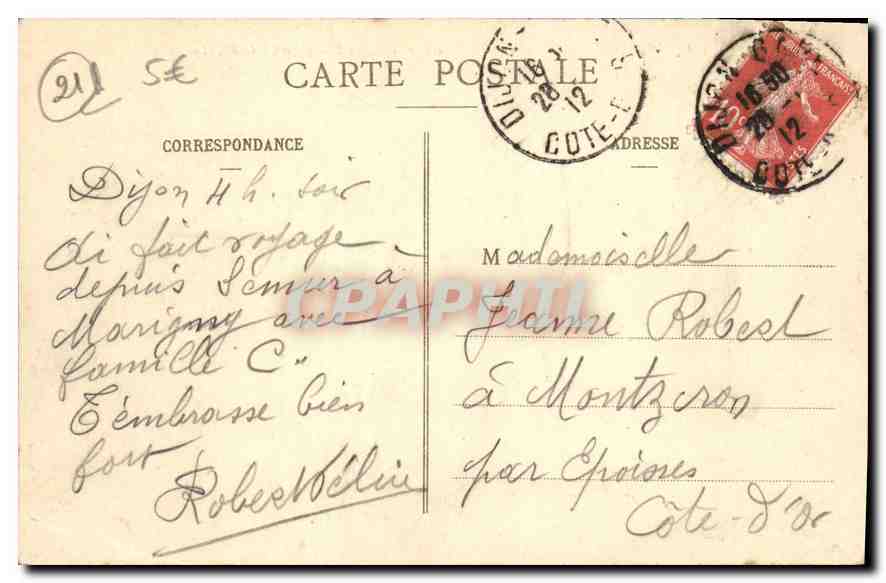 21
5€
CARTE POSTALE
CORRESPONDANCE
Dijon 4 h. soir
ai fait voyage
depuis Semur à
Marigny avec
famille C"
T'embrasse bien
fort
Robert
ADRESSE
Mademoiselle
Jeanne Robert
à Montzeron
par Epoisses
Côte-d'Or
DIJON
16
28
12
COTE-D
DIJON
16 50
28
12
COTE
10
FRANÇAISE
CPAPHIL